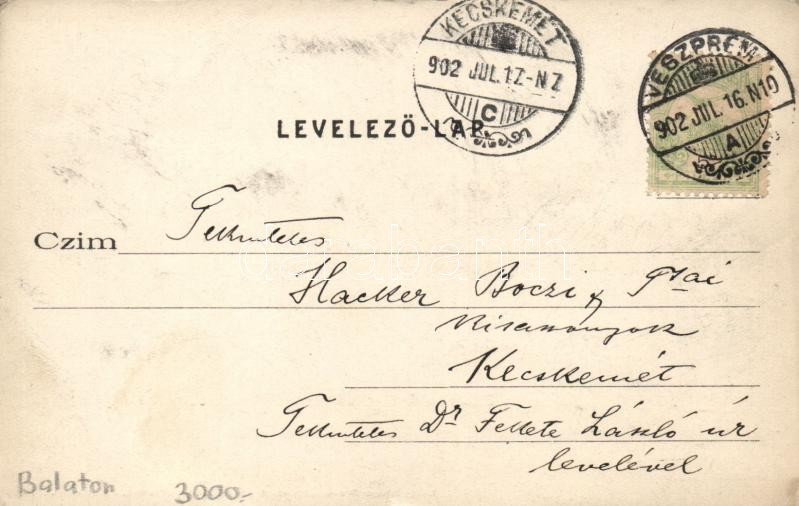 KECSKEMÉT
902 JUL.17-NZ
C
VESZPRÉM
902 JUL.16.N10
A
LEVELEZŐ-LAP.
Czim Tekintetes
Hacker Boczi &
Kecskemét
Tekintetes Dr Fekete László úr
levelével
Balaton 3000.-